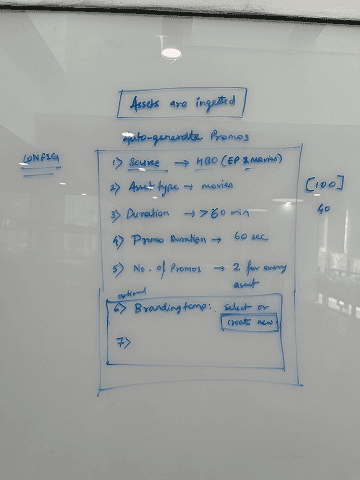 Assets are ingested
Auto-generate Promos
CONFIG
1) Source → HBO (EP & Movies)
2) Asset type → movies
[100]
3) Duration → > 60 min
40
4) Promo Duration → 60 sec
5) No. of Promos → 2 for every
asset
optional
6) Branding temp: select or
create new
7)